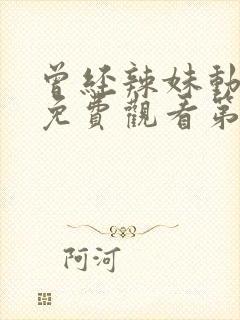 曾经辣妹動
免費觀看第
阿河